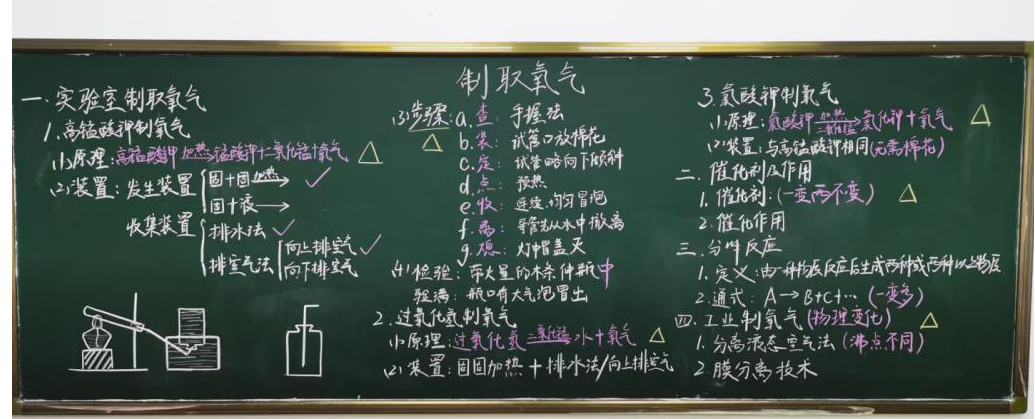 制取氧气
一.实验室制取氧气
1.高锰酸钾制氧气
(1)原理:高锰酸钾 加热→ 锰酸钾+二氧化锰+氧气 △
(2)装置:发生装置 { 固+固 加热→ ✓
固+液→
收集装置 { 排水法✓
排空气法 { 向上排空气✓
向下排空气
(3)步骤:a.查:手握法
△ b.装:试管口放棉花
c.定:试管略向下倾斜
d.点:预热
e.收:连续.均匀冒泡
f.离:导管先从水中撤离
g.熄:灯帽盖灭
(4)检验:带火星的木条伸瓶中
验满:瓶口有大气泡冒出
2.过氧化氢制氧气
(1)原理:过氧化氢 二氧化锰→ 水+氧气 △
(2)装置:固固加热+排水法/向上排空气
3.氯酸钾制氧气
(1)原理:氯酸钾 加热 二氧化锰→ 氯化钾+氧气 △
(2)装置:与高锰酸钾相同(无需棉花)
二.催化剂及作用
1.催化剂:(一变两不变) △
2.催化作用
三.分解反应
1.定义:由一种物质反应后生成两种或两种以上物质
2.通式:A→B+C+…(一变多)
四.工业制氧气(物理变化) △
1.分离液态空气法(沸点不同)
2.膜分离技术